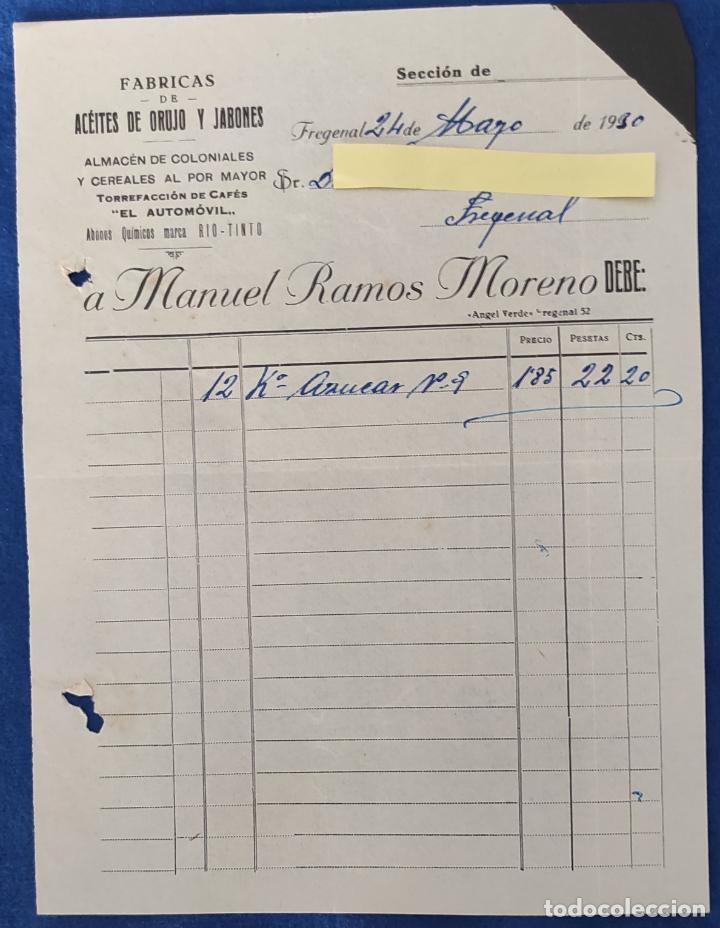 FABRICAS
- DE -
ACÉITES DE ORUJO Y JABONES
ALMACÉN DE COLONIALES
Y CEREALES AL POR MAYOR
TORREFACCIÓN DE CAFÉS
"EL AUTOMÓVIL„
Abonos Químicos marca RIO-TINTO
Sección de
Fregenal 24 de Mayo de 1930
Sr. D.
Fregenal
a Manuel Ramos Moreno DEBE:
«Angel Verde» Fregenal 52
PRECIO PESETAS CTS.
12 Ko Azucar no 9 1'85 22 20
todocoleccion.net